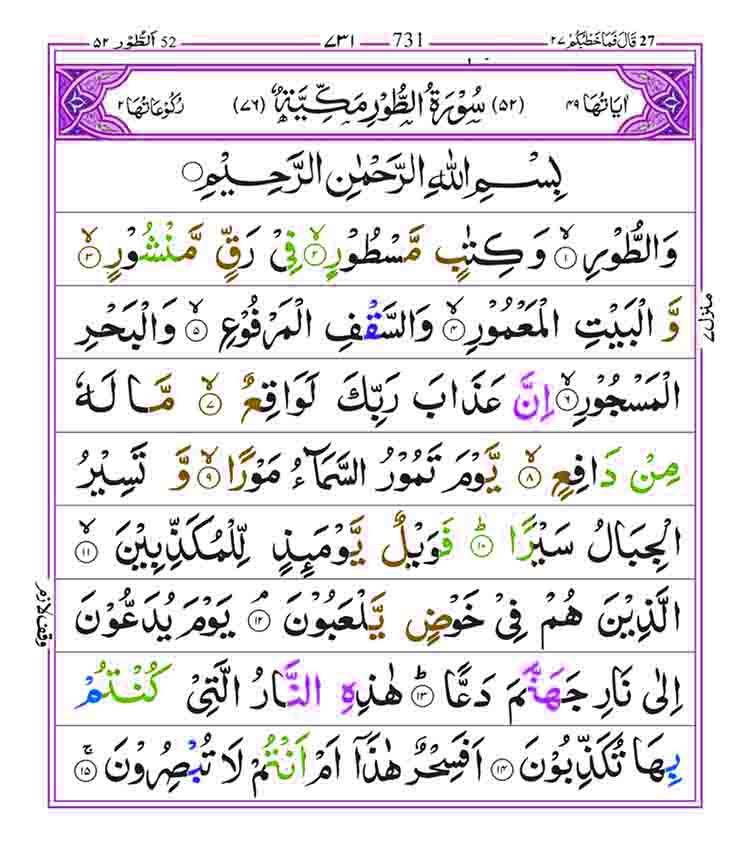 52 اَلطُّوْر ۵۲
731 ۷۳۱
27 قَالَ فَمَا خَطْبُكُمْ ۲۷
اٰيَاتُهَا ۴۹
(۵۲) سُوْرَةُ الطُّوْرِ مَكِّيَّةٌ (۷۶)
رُكُوْعَاتُهَا ۲
بِسْــمِ اللّٰهِ الرَّحْمٰنِ الرَّحِــيْمِ ○
وَالطُّوْرِ ۙ﴿۱﴾ وَكِتٰبٍ مَّسْطُوْرٍ ۙ﴿۲﴾ فِيْ رَقٍّ مَّنْشُوْرٍ ۙ﴿۳﴾
وَّ الْبَيْتِ الْمَعْمُوْرِ ۙ﴿۴﴾ وَالسَّقْفِ الْمَرْفُوْعِ ۙ﴿۵﴾ وَالْبَحْرِ
الْمَسْجُوْرِ ۙ﴿۶﴾ اِنَّ عَذَابَ رَبِّكَ لَوَاقِعٌ ۙ﴿۷﴾ مَّا لَهٗ
مِنْ دَافِعٍ ۙ﴿۸﴾ يَّوْمَ تَمُوْرُ السَّمَآءُ مَوْرًا ۙ﴿۹﴾ وَّ تَسِيْرُ
الْجِبَالُ سَيْرًا ؕ﴿۱۰﴾ فَوَيْلٌ يَّوْمَئِذٍ لِّلْمُكَذِّبِيْنَ ۙ﴿۱۱﴾
الَّذِيْنَ هُمْ فِيْ خَوْضٍ يَّلْعَبُوْنَ ۘ﴿۱۲﴾ يَوْمَ يُدَعُّوْنَ
اِلٰى نَارِ جَهَنَّمَ دَعًّا ؕ﴿۱۳﴾ هٰذِهِ النَّارُ الَّتِيْ كُنْتُمْ
بِهَا تُكَذِّبُوْنَ ﴿۱۴﴾ اَفَسِحْرٌ هٰذَآ اَمْ اَنْتُمْ لَا تُبْصِرُوْنَ ۚ﴿۱۵﴾
منزل ۷
وقف لازم